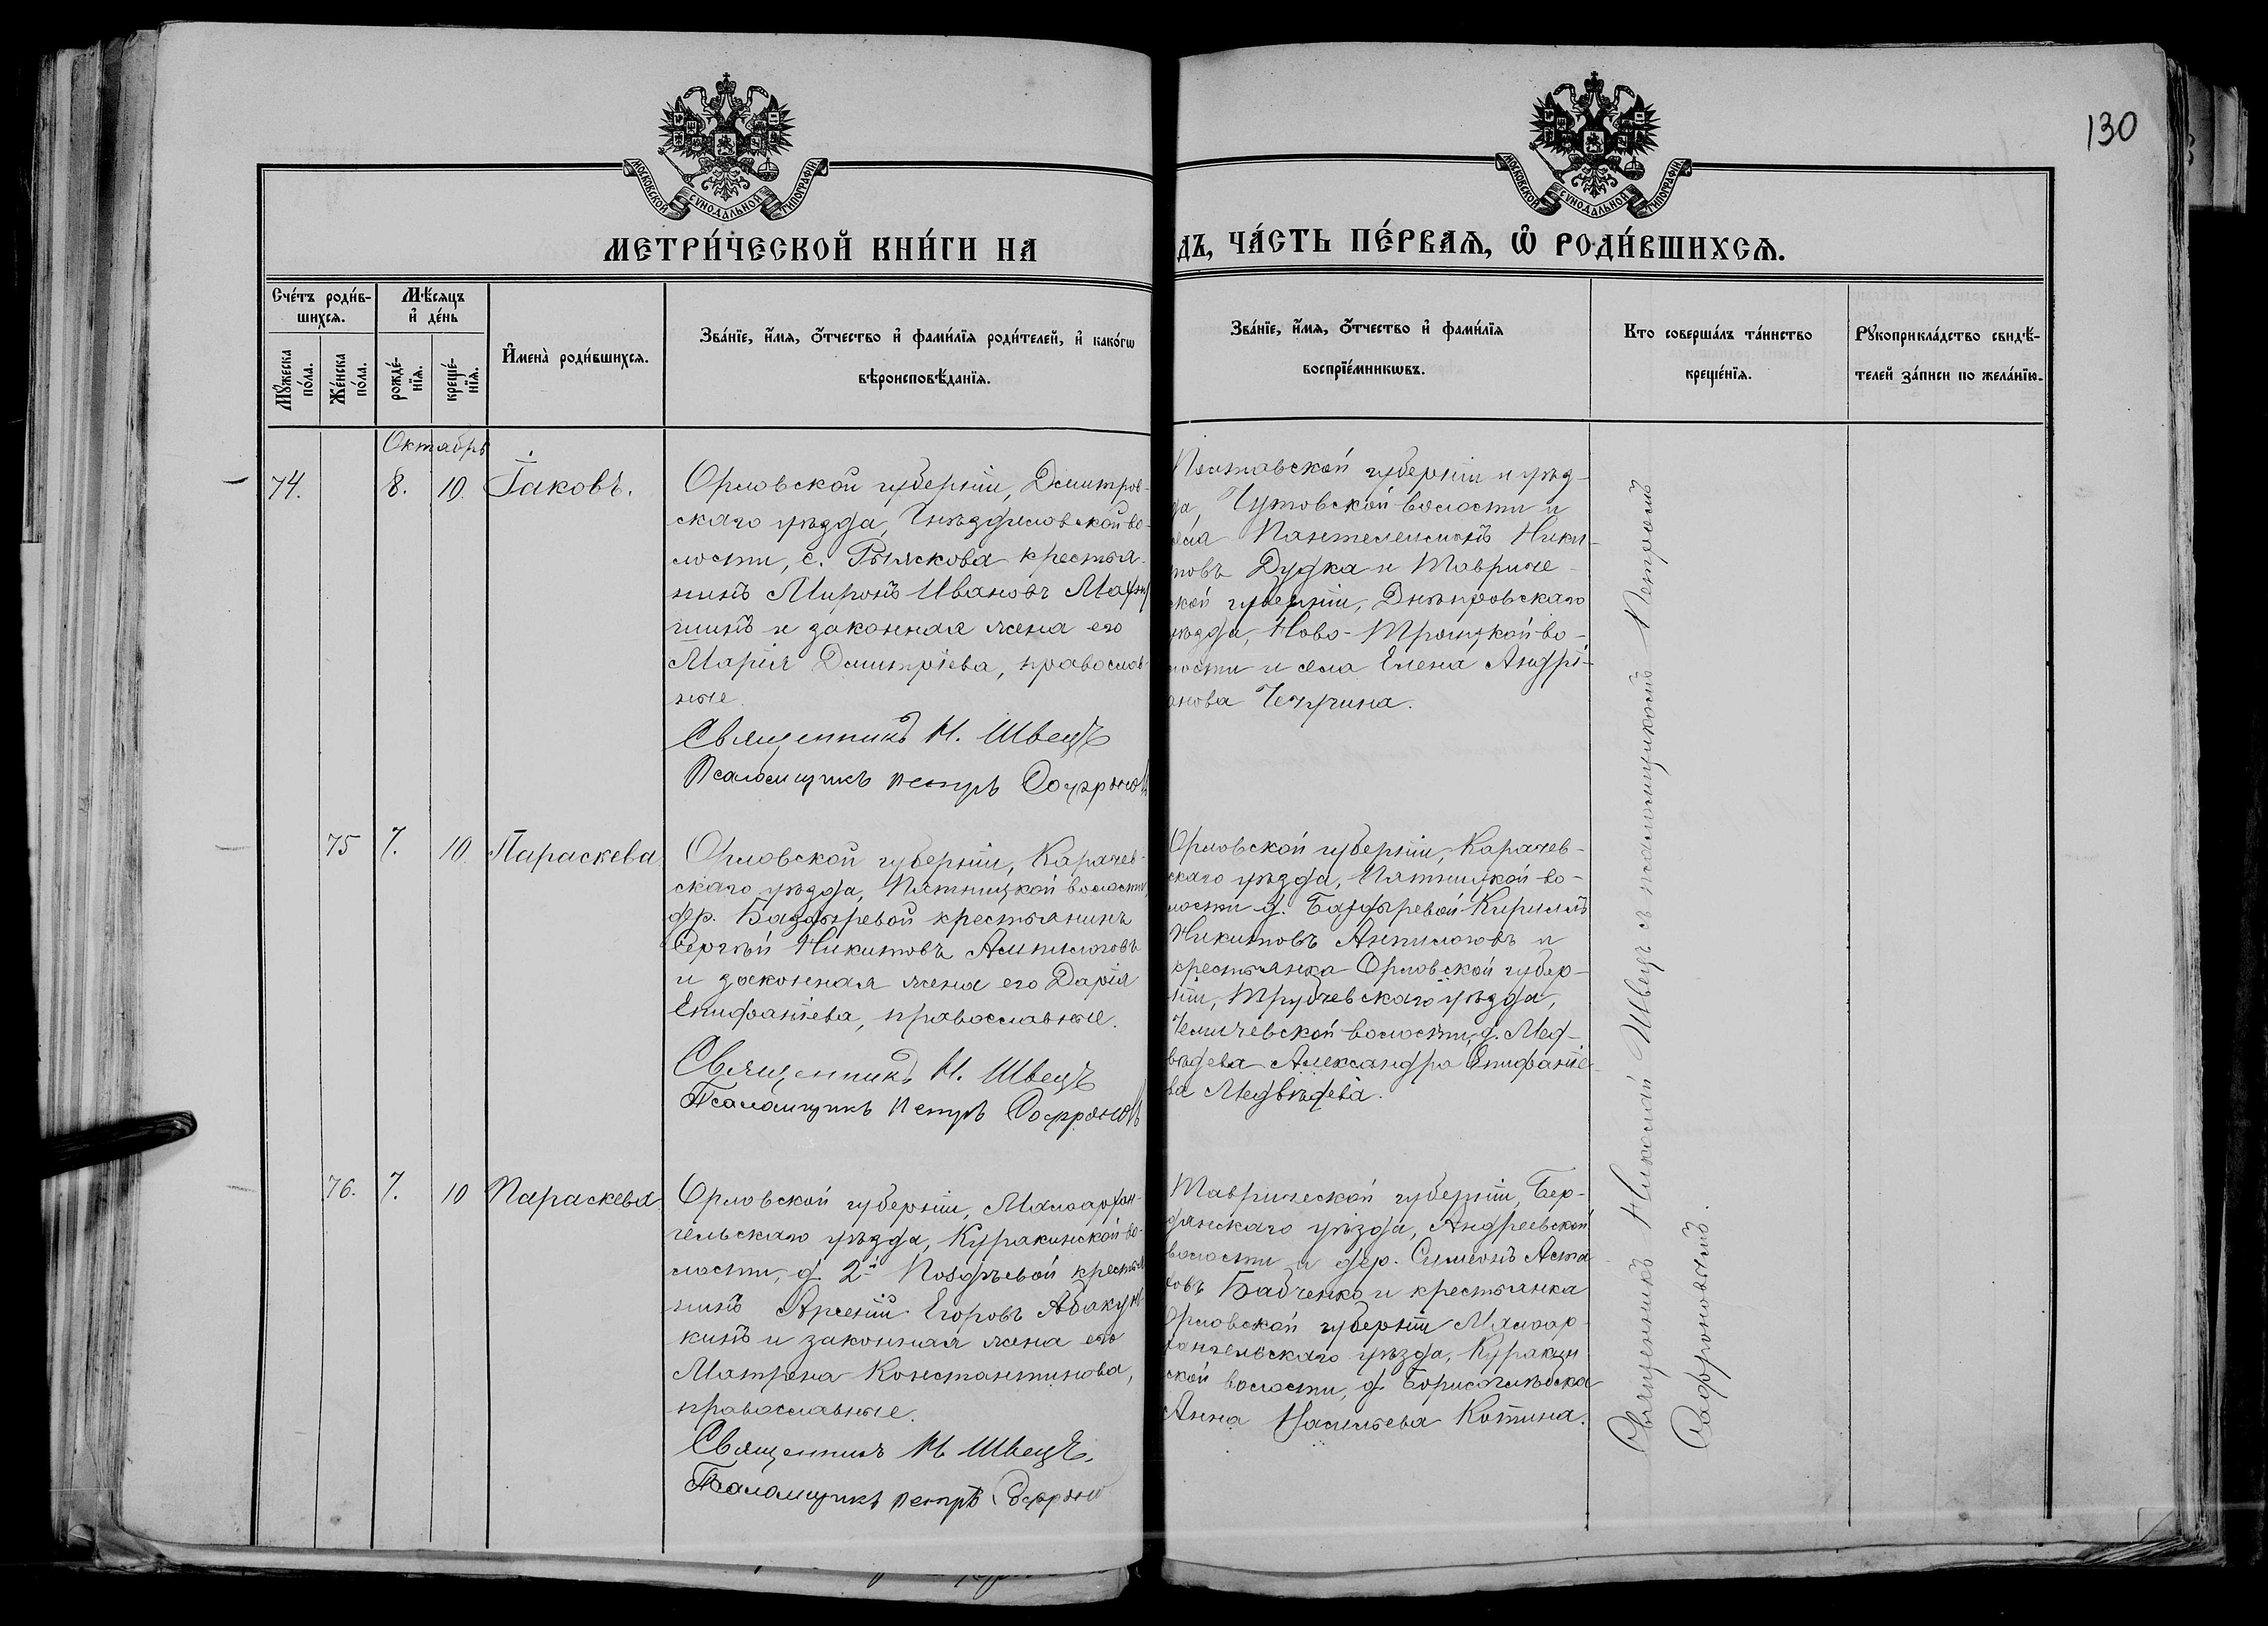 130
МОСКОВСКОЙ СѴНОДАЛЬНОЙ ТИПОГРАФІИ
МОСКОВСКОЙ СѴНОДАЛЬНОЙ ТИПОГРАФІИ
МЕТРИ́ЧЕСКОЙ КНИ́ГИ НА
ДЪ, ЧА́СТЬ ПЕ́РВАѦ, Ѽ РОДИ́ВШИХСѦ.
Сче́тъ роди́в-
шихсѧ.
Мꙋ́жеска
пола.
Же́нска
по́ла.
Мѣ́сяцъ
и҆ де́нь
рожде́-
нїѧ.
креще́-
нїѧ.
И҆мена̀ роди́вшихсѧ.
Зва́нїе, и҆́мѧ, о҆́тчество и҆ фами́лїѧ роди́телей, и҆ како́гѡ
вѣроисповѣ́данїѧ.
Зва́нїе, и҆́мѧ, о҆́тчество и҆ фами́лїѧ
воспрїе́мникѡвъ.
Кто соверша́лъ та́инство
креще́нїѧ.
Рꙋкоприкла́дство свидѣ́-
телей за́писи по жела́нїю.
Октябрь
74.
8.
10.
Іаковъ.
Орловской губерніи, Дмитров-
скаго уѣзда, Гнѣздиловской во-
лости, с. Рыжкова крестья-
нинъ Миронъ Ивановъ
и законная жена его
Марія Дмитріева, православ-
ные.
Священникъ Н. Швецъ
Псаломщикъ Петръ Софронов
Полтавской губерніи и уѣз-
да, Чутовской волости и
села Пантелеимонъ Ники-
товъ Дудка и Тавриче-
ской губерніи, Днѣпровскаго
уѣзда, Ново-Троицкой во-
лости и села Елена Андрі-
анова
75
7.
10.
Параскева.
Орловской губерніи, Карачев-
скаго уѣзда, Пятницкой волости,
дер. Баздыревой крестьянинъ
Сергѣй Никитовъ Антипоновъ
и законная жена его Дарія
Епифаніева, православные.
Священникъ Н. Швецъ
Псаломщикъ Петръ Софронов
Орловской губерніи, Карачев-
скаго уѣзда, Пятницкой во-
лости д. Баздыревой Кириллъ
Никитовъ и
крестьянка Орловской губер-
ніи, Трубчевскаго уѣзда,
волости, д. Мед-
вѣдева Александра Епифаніе-
ва Медвѣдева.
76.
7.
10
Параскева.
Орловской губерніи, Малоархан-
гельскаго уѣзда, Куракинской во-
лости, д. 2-й Поздѣевой крестья
нинъ Арсеній Егоровъ Абакум-
кинъ и законная жена его
Матрона Константинова,
православные.
Священникъ Н. Швецъ.
Псаломщикъ Петръ Софронов
Таврической губерніи, Бер-
дянскаго уѣзда, Андреевской
волости и дер. Симеонъ Аста
ховъ Бабченко и крестьянка
Орловской губерніи Малоар-
хангельскаго уѣзда, Куракин
ской волости, д. Борисоглѣбска
Анна Васильева Котина.
Священникъ Николай Швецъ съ псаломщикомъ Петромъ
Софроновымъ.